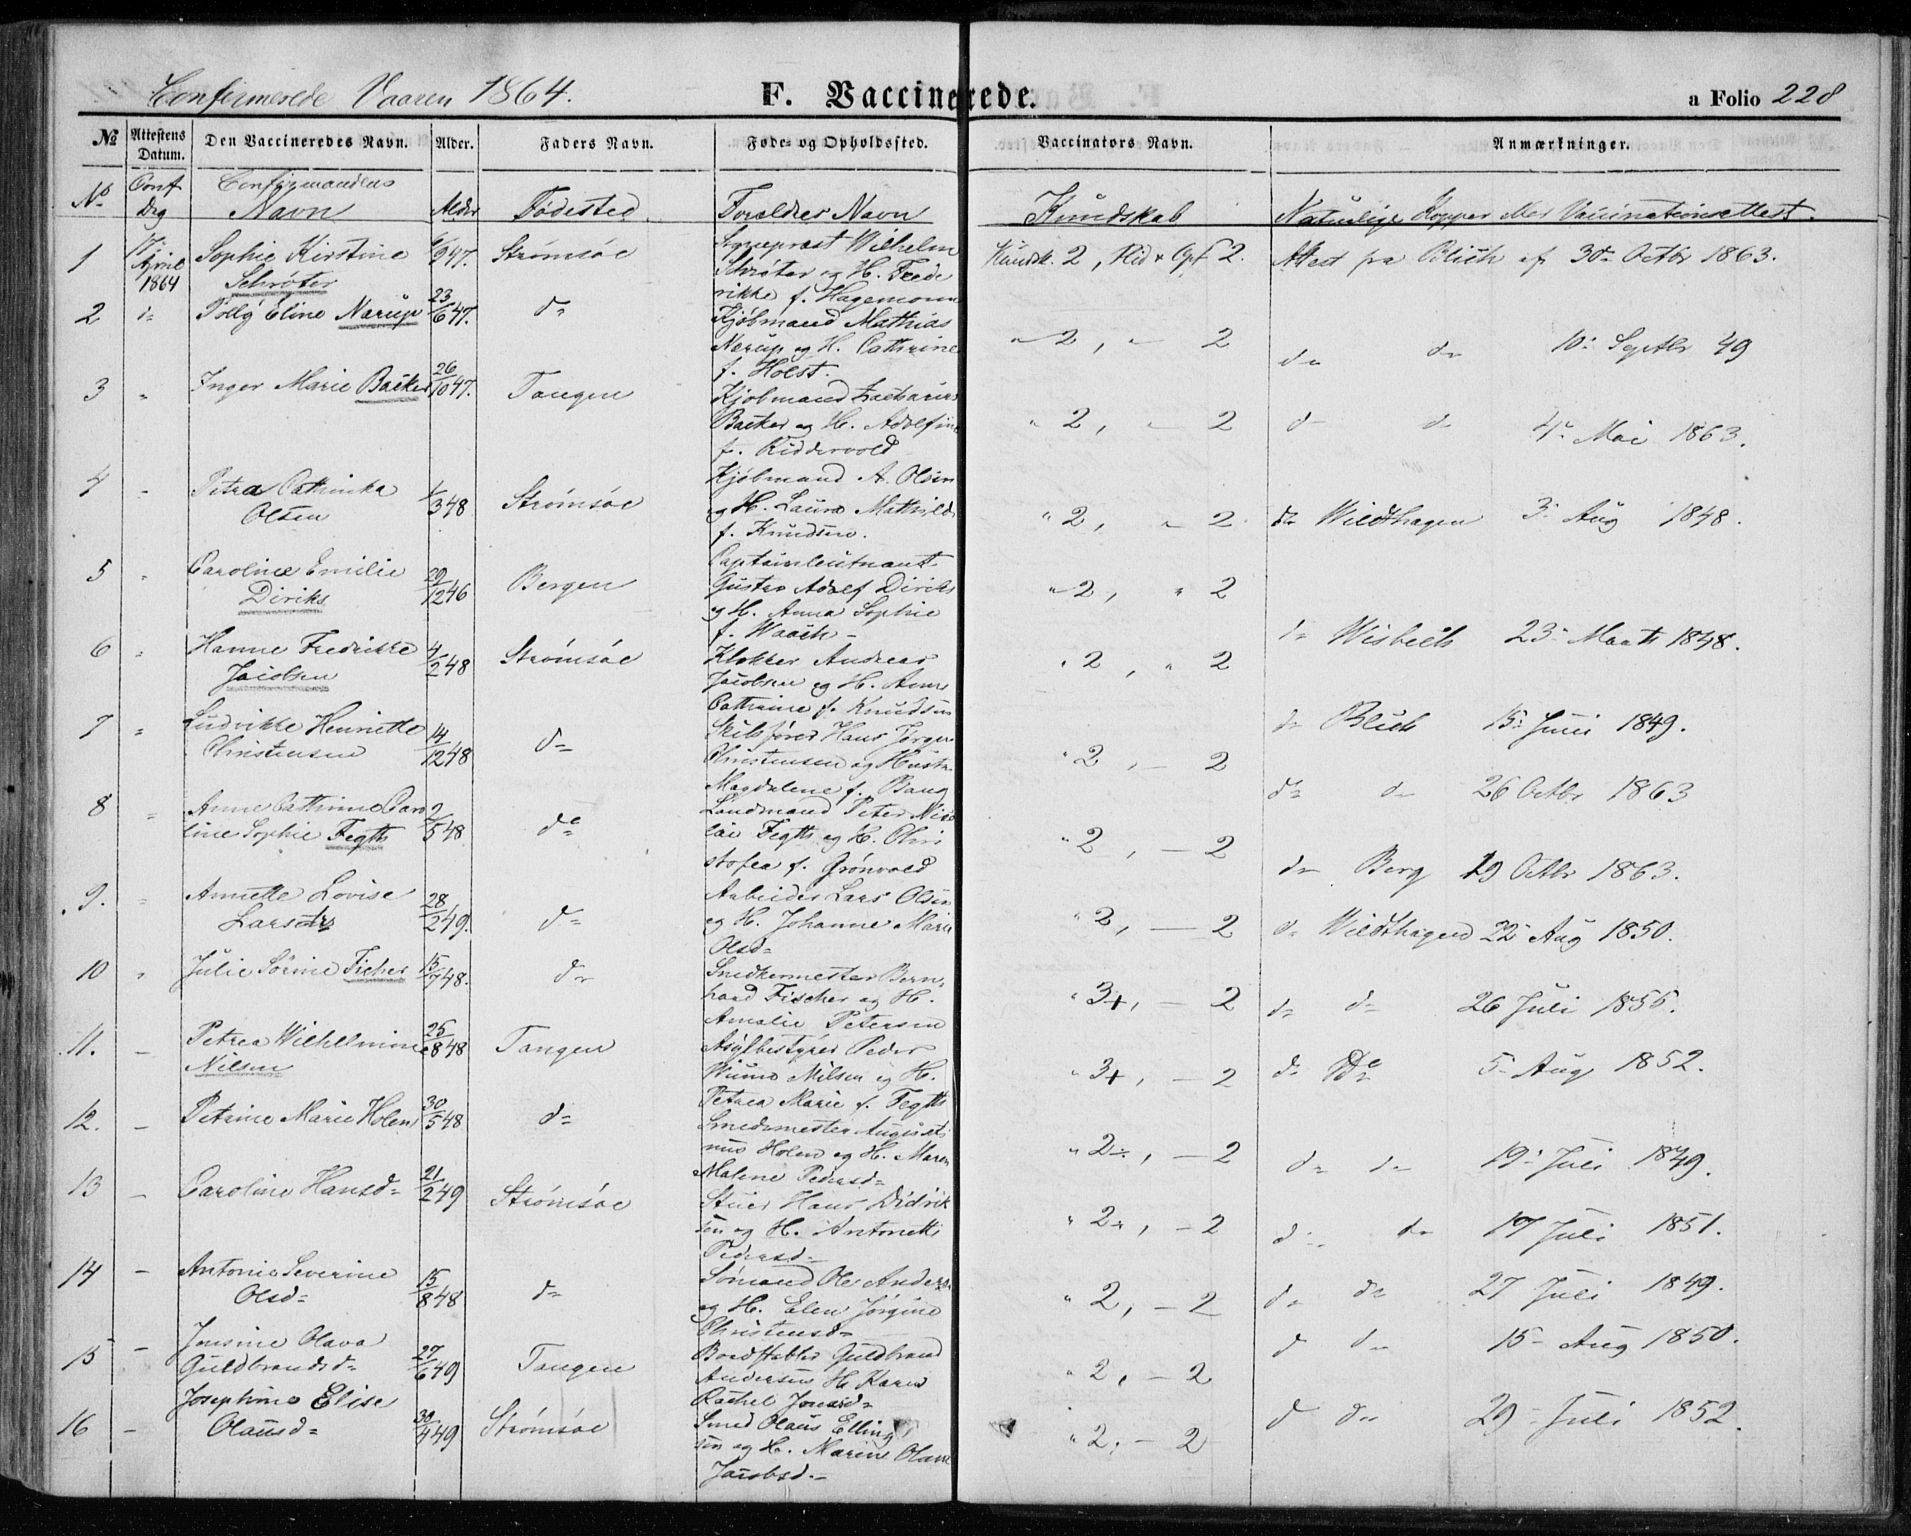 Confirmerede Vaaren 1864. F. Vaccinerede. a Folio 228
№ Attestens Datum. Den Vaccineredes Navn. Alder. Faders Navn. Føde- og Opholdssted. Vaccinators Navn. Anmærkninger.
No Conf Dag Confirmandens Navn Alder Fødested Forældres Navn Kundskab Naturlige Kopper eller Vaccinationsattest.
1 17 April 1864 Sophie Kirstine Schrøter 47. Strømsøe
Sogneprest Wilhelm
Schrøter og H. Frede
rikke f. Hagemann
Kundsk. 2, Flid 2. Attest fra Blich af 30 Octbr 1863.
2 d= Polly Eline Nærup 23/6 47. d=
Kjøbmand Mathias
Nærup og H. Cathrine
f. Holst.
" 2, " 2 d= d= 10 Septbr 49
3 " Inger Marie Backer 26/10 47. Tangen
Kjøbmand Zacharias
Backer og H. Adolfine
f. Riddervold
" 2, " 2 d= d= 4 Mai 1863.
4 " Petra Cathinka Olsen 1/3 48 Strømsøe
Kjøbmand A. Olsen
og H. Laura Mathilde
f. Knudsen.
" 2, " 2 d= Wildthagen 3 Aug 1848.
5 " Caroline Emilie Diriks 29/12 46 Bergen
Captainleutnant
Gustav Adolf Diriks
og H. Anna Sophie
f.
" 2, " 2 d= Wisbech 23 Marts 1848.
6 " Hanne Fredrikke Jacobsen 4/2 48 Strømsøe
Klokker Andreas
Jacobsen og H. Anne
Cathrine f. Knudsen
" 2, " 2 d= Blich 15 Juni 1849.
7 " Ludvikke Henriette Christensen 14/12 48 d=
Skibsfører Hans Jørgen
Christensen og Hustr.
Magdalene f. Bang
" 2, — 2 d= d= 26 Octbr 1863
8 " Anne Cathrine Caro
line Sophie Fegth 2/5 48 d=
Landmand Peter Nico
lai Fegth og H. Chri
stofea f. Grønvold
" 2, — 2 d= Berg 19 Octbr 1863.
9. " Annette Lovise Larsdtr 28/2 49. d=
Arbeider Lars Olsen
og H. Johanne Marie
Olsd=
" 2, — 2 d= Wildthagen 22 Aug 1850.
10 " Julie Sørine Fischer 15/7 48. d=
Snedkermester Bern,
hard Fischer og H.
Amalie Petersen
" 3+, — 2 d= d= 26 Juli 1855.
11. — Petrea Wilhelmine Nilsen 25/8 48 Tangen
Asylbestyrer Peder
Nilsen og H.
Petrea Marie f. Fegth
" 3+, — 2 d= D= 5 Aug 1852.
12. — Petrine Marie Holen 30/5 48 d=
Smedemester Augusti
nus Holen og H. Maren
Malene Pedersd=
" 2÷, — 2 d= d= 19 Juli 1849.
13 — Caroline Hansd= 21/2 49 Strømsøe
Stuer Hans Didrik
sen og H. Antonette
Pedersd=
" 2÷, — 2 d= d= 17 Juli 1851.
14 — Antonie Severine Olsd= 15/8 48 d=
Sømand Ole Anders.
og H. Elen Jørgine
Christensd=
" 2, — 2 d= d= 27 Juli 1849.
15 — Jensine Olava Guldbrandsd= 27/6 49 Tangen
Bordstabler Guldbrand
Andersen H. Karen
Rachel Jonasd=
" 2, — 2 d d= 15 Aug 1850.
16 — Josephine Elise Olausd= 30/4 49 Strømsøe
Smed Olaus Elling
sen og H. Marine Olave
Jacobsd.=
" 2, — 2 d d= 29 Juli 1852.